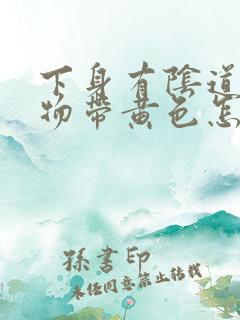 下身有陰道
物帶黄色怎
孫書印
未经同意禁止转载